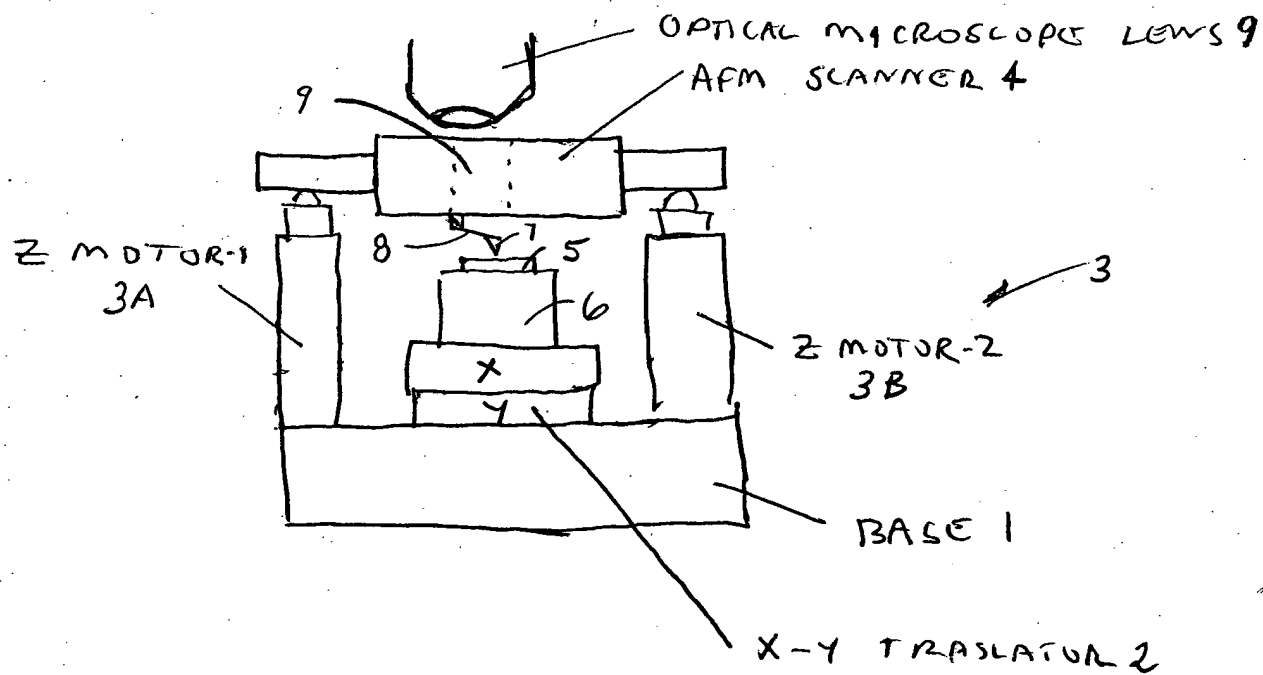 OPTICAL MICROSCOPE LENS 9
AFM SCANNER 4
9
8
7
5
Z MOTOR-1
3A
6
3
Z MOTOR-2
3B
X
Y
BASE 1
X-Y TRASLATOR 2